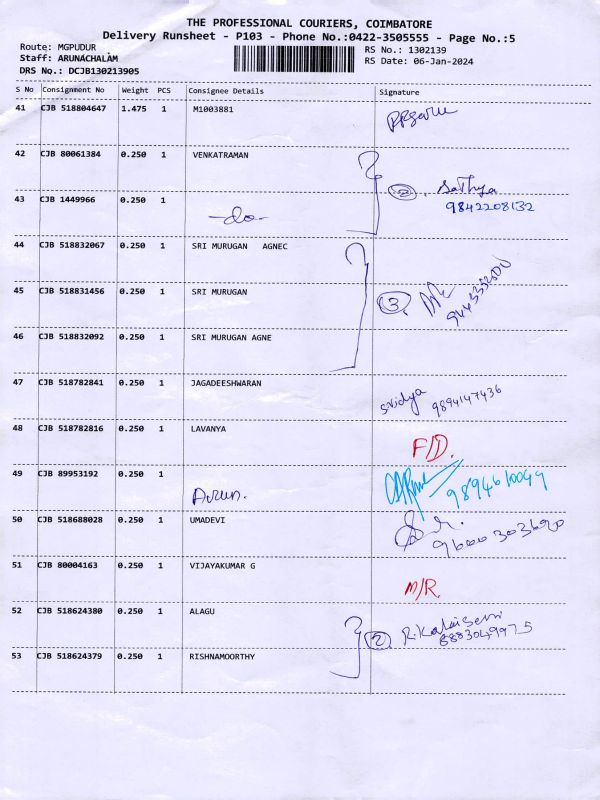 THE PROFESSIONAL COURIERS, COIMBATORE
Delivery Runsheet - P103 - Phone No.:0422-3505555 - Page No.:5
Route: MGPUDUR RS No.: 1302139
Staff: ARUNACHALAM RS Date: 06-Jan-2024
DRS No.: DCJB130213905
S No Consignment No Weight PCS Consignee Details Signature
41 CJB 518804647 1.475 1 M1003881
42 CJB 80061384 0.250 1 VENKATRAMAN
2 Sathya
43 CJB 1449966 0.250 1 -do- 9842208132
44 CJB 518832067 0.250 1 SRI MURUGAN AGNEC
45 CJB 518831456 0.250 1 SRI MURUGAN 3
46 CJB 518832092 0.250 1 SRI MURUGAN AGNE
47 CJB 518782841 0.250 1 JAGADEESHWARAN Sridya 9894147436
48 CJB 518782816 0.250 1 LAVANYA F/D.
49 CJB 89953192 0.250 1 Arun. 9894610049
50 CJB 518688028 0.250 1 UMADEVI 9600303690
51 CJB 80004163 0.250 1 VIJAYAKUMAR G M/R.
52 CJB 518624380 0.250 1 ALAGU 2 R.Kalaiselvi
8883049975
53 CJB 518624379 0.250 1 RISHNAMOORTHY